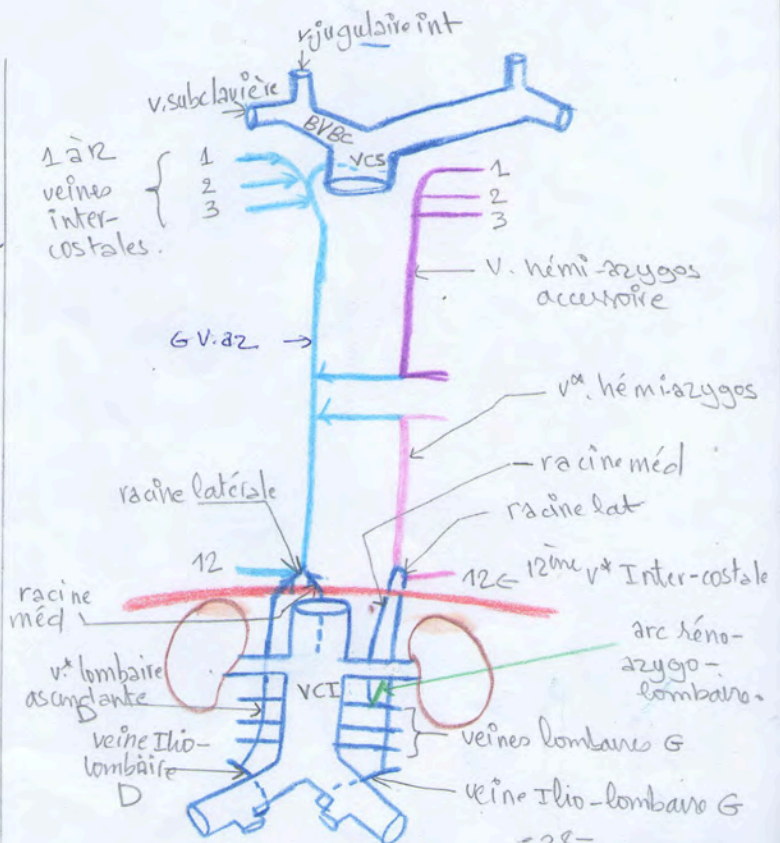 v.jugulaire int
v.subclavière
BVBC
VCS
1 à 12
veines
inter-
costales.
1
2
3
1
2
3
V. hémi-azygos
accessoire
G V.az
v. hémi-azygos
racine méd
racine latérale
racine lat
12
12 ← 12ème v* Inter-costale
racine
méd
arc réno-
azygo-
lombaire.
v.* lombaire
ascendante
D
VCI
veines lombaires G
veine Ilio-
lombaire
D
veine Ilio-lombaire G